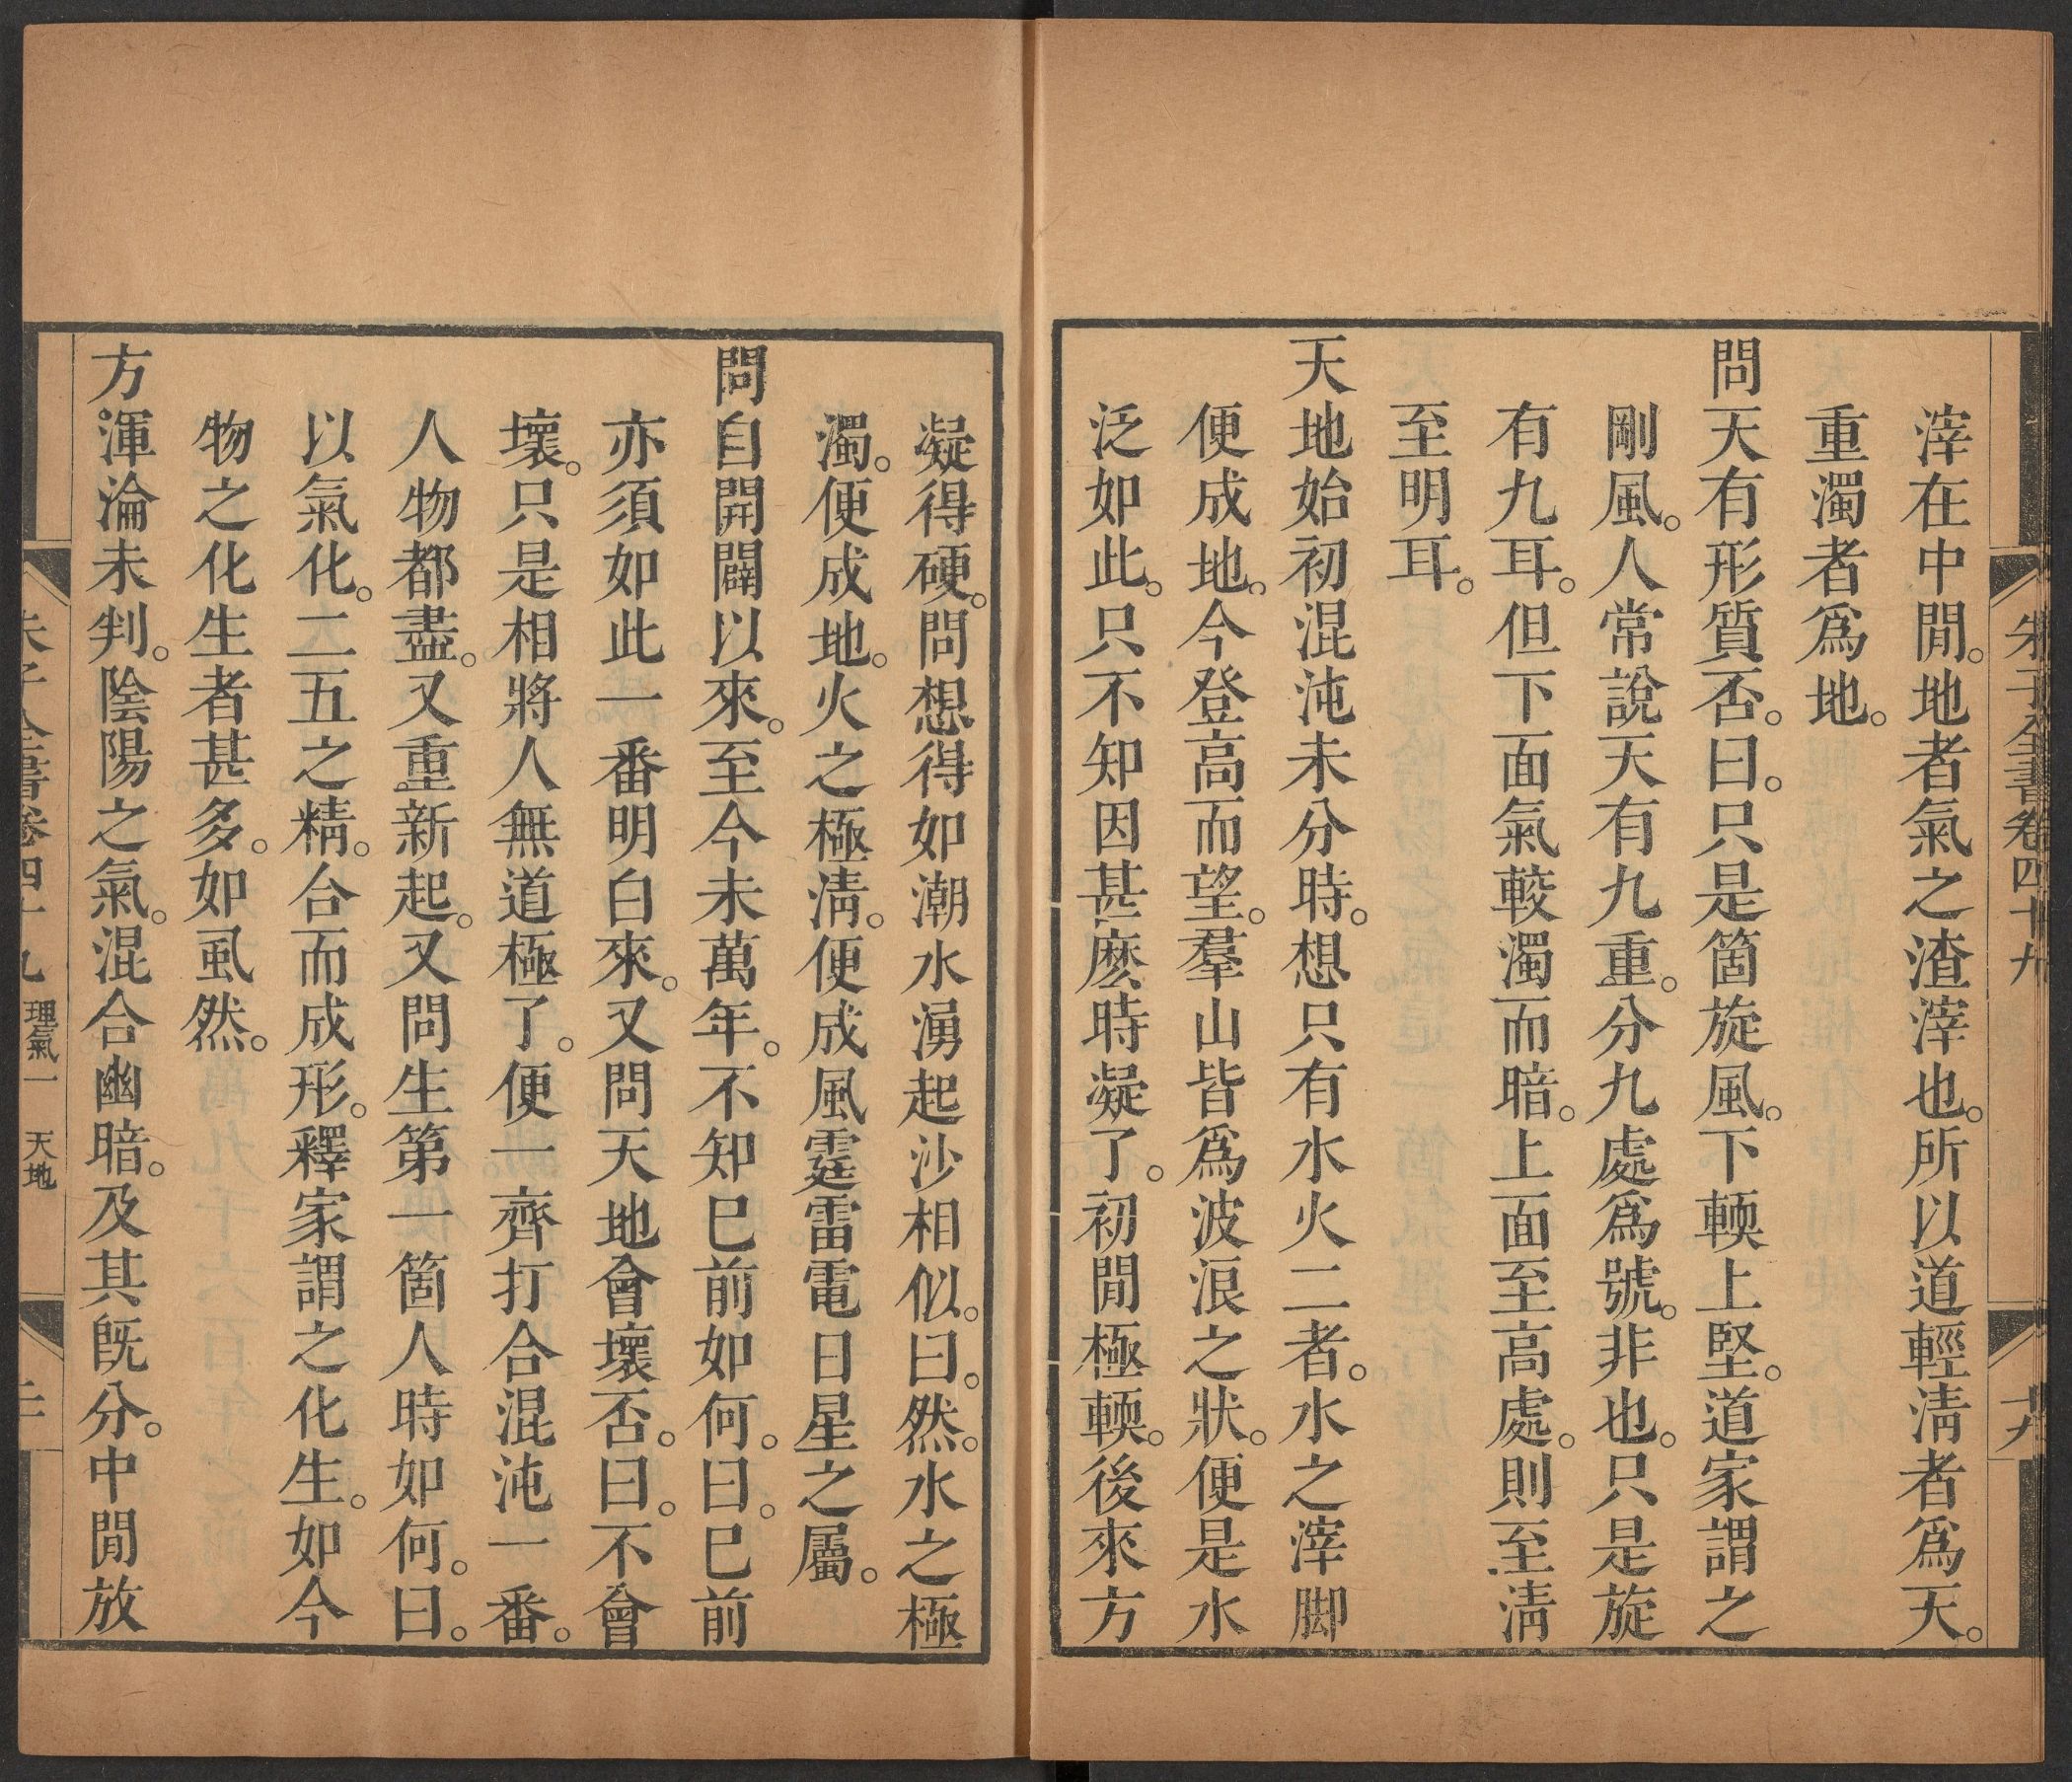 朱子全書卷四十九
十九
滓在中閒。地者氣之渣滓也。所以道輕淸者爲天。
重濁者爲地。
問天有形質否。曰。只是箇旋風。下輭上堅。道家謂之
剛風。人常說天有九重。分九處爲號。非也。只是旋
有九耳。但下面氣較濁而暗。上面至高處。則至淸
至明耳。
天地始初混沌未分時。想只有水火二者。水之滓脚
便成地。今登高而望。羣山皆爲波浪之狀。便是水
泛如此。只不知因甚麽時凝了。初閒極輭。後來方
凝得硬。問想得如潮水湧起沙相似。曰。然。水之極
濁。便成地。火之極淸。便成風霆雷電日星之屬。
問自開闢以來。至今未萬年。不知已前如何。曰。已前
亦須如此一番明白來。又問天地會壞否。曰。不會
壞。只是相將人無道極了。便一齊打合混沌一番。
人物都盡。又重新起。又問生第一箇人時如何。曰。
以氣化。二五之精。合而成形。釋家謂之化生。如今
物之化生者甚多。如虱然。
方渾淪未判。陰陽之氣。混合幽暗。及其旣分。中閒放
朱子全書卷四十九 理氣一 天地